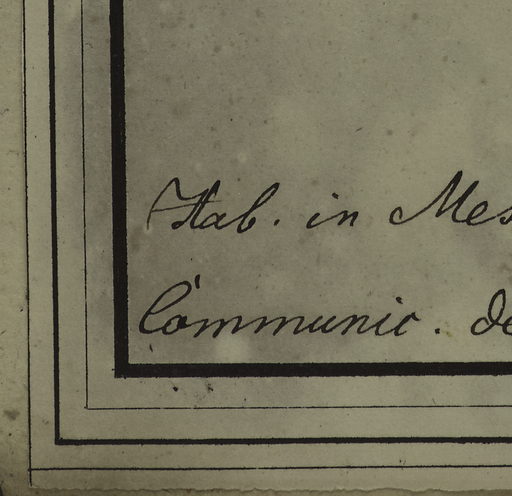 Hab. in Mes
Communic. de